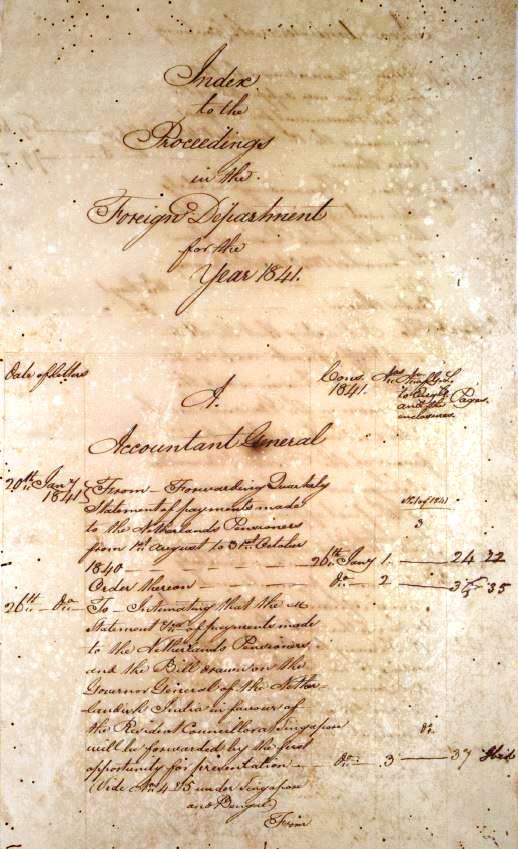 Index
to the
Proceedings
in the
Foreign Department
for the
Year 1841.
Date of letters
Cons. 1841.
and the
enclosures
Pages.
A.
Accountant General
20th Jany 1841
From – Forwarding Quarterly
Statement of payments made
No. 1 of 1841
to the Netherlands Pensioners
3
from 1st August to 31st October
1840 – 26th Jany 1. – 24 22
Order thereon – do 2 – 35
26th do To – Intimating that the
Statement &ca of payments made
to the Netherlands Pensioners,
and the Bill drawn on the
Governor General of the Nether-
lands India in favour of
the Resident Councillor at Singapore
do.
will be forwarded by the first
opportunity for presentation – do 3 – 37
(Vide Nos. 4 & 5 under Singapore
and Bengal)
From